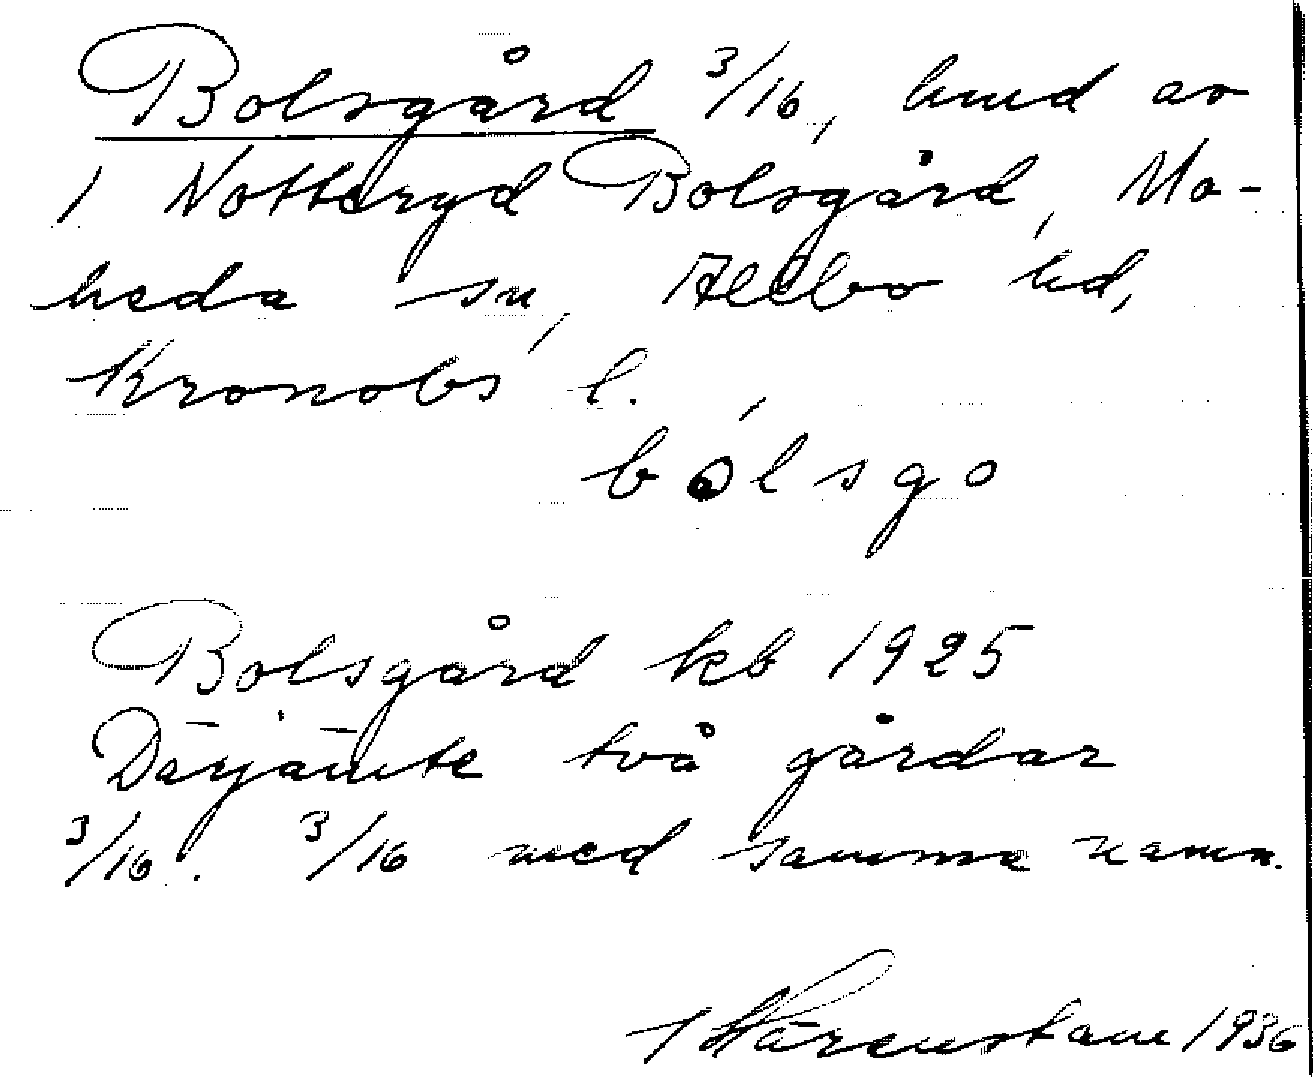 Bolsgård 3/16, hmd av
1 Notteryd Bolsgård, Mo-
heda sn, Allbo hd,
Kronobs l.
bólsgo
Bolsgård kb 1925
Därjämte två gårdar
3/16. 3/16 med samma namn.
1936